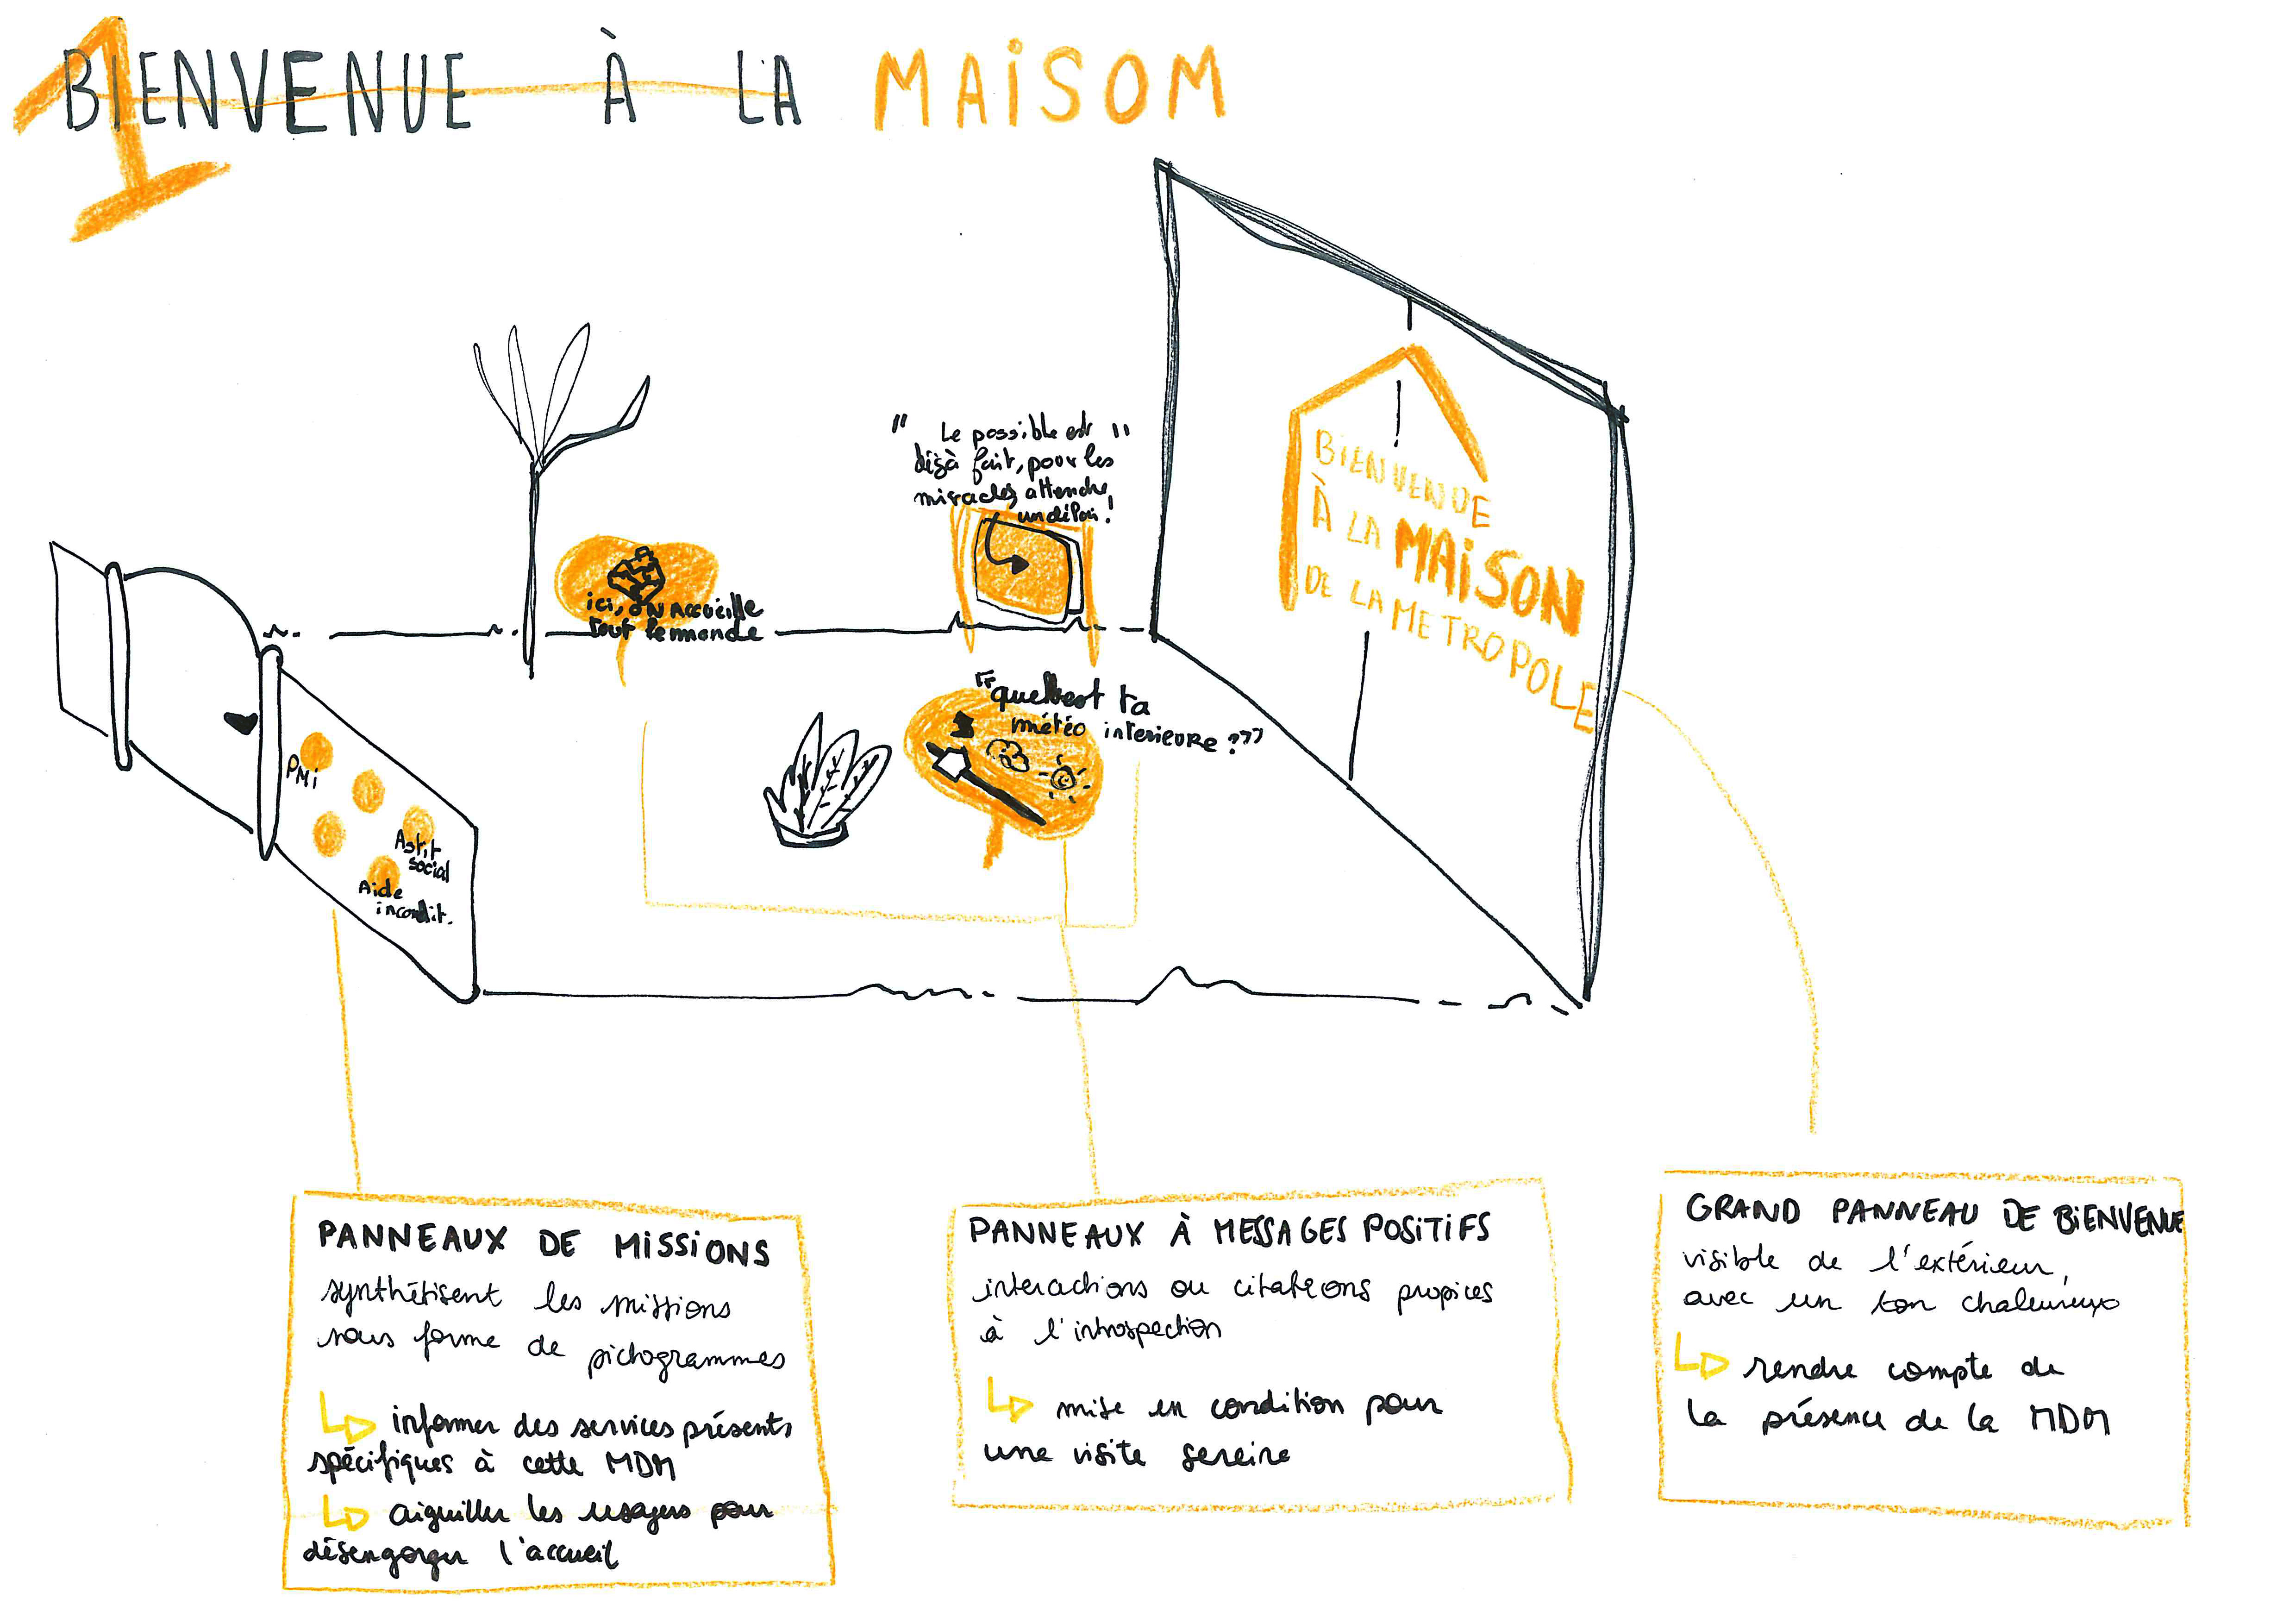 1
BIENVENUE À LA MAiSOM
"Le possible est"
déjà fait, pour les
miracles, attendre
un délai!
ici, on Accueille
tout le monde
"quelle est ta
météo interieure ??"
BiENVENUE
À LA MAiSON
DE LA METROPOLE
PMi
Asst
social
Aide
incondit.
PANNEAUX DE MiSSiONS
synthétisent les missions
sous forme de pictogrammes
informer des services présents
spécifiques à cette MDM
aiguiller les usagers pour
désengorger l'accueil
PANNEAUX À MESSAGES POSiTiFS
interactions ou citations propices
à l'introspection
mise en condition pour
une visite sereine
GRAND PANNEAU DE BiENVENUE
visible de l'extérieur,
avec un ton chaleureux
rendre compte de
la présence de la MDM